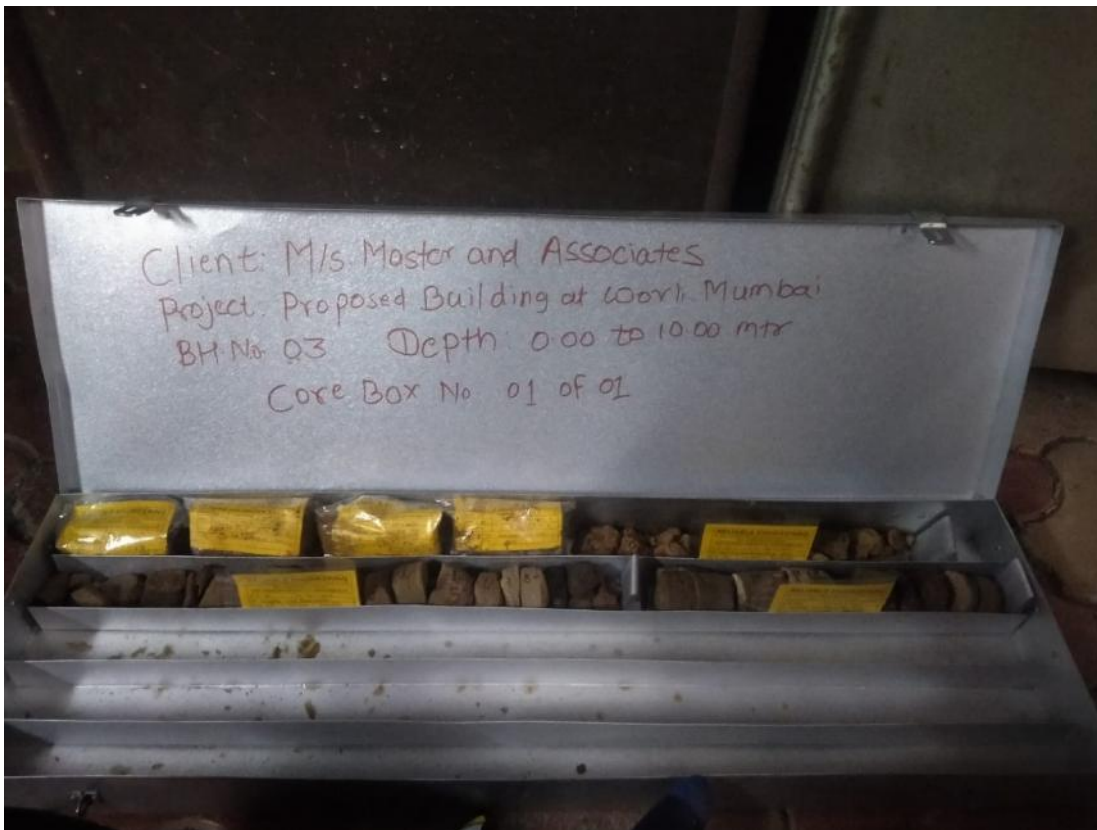 Client: M/s. Mastor and Associates
Project. Proposed Building at Worli. Mumbai
BH.No 03 Depth 0.00 to 10.00 mtr
Core Box No 01 of 01